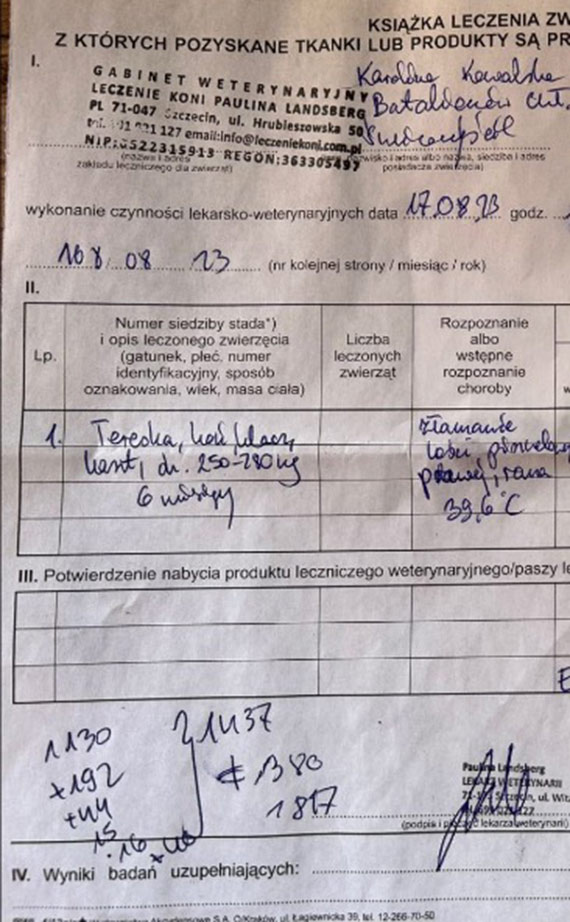 KSIĄŻKA LECZENIA ZW
Z KTÓRYCH POZYSKANE TKANKI LUB PRODUKTY SĄ PR
I.
GABINET WETERYNARYJNY
LECZENIE KONI PAULINA LANDSBERG
PL 71-047 Szczecin, ul. Hrubieszowska 50
021 127 email:info@leczeniekoni.com.pl
NIP:8522315913 REGON:363305497
Karolina Kowalska
Batalionów Chł.
(nazwa i adres
zakładu leczniczego dla zwierząt)
(nazwisko i adres albo nazwa, siedziba i adres
posiadacza zwierzęcia)
wykonanie czynności lekarsko-weterynaryjnych data 17.08.23 godz.
168 08 23 (nr kolejnej strony / miesiąc / rok)
II.
Lp.
Numer siedziby stada*)
i opis leczonego zwierzęcia
(gatunek, płeć, numer
identyfikacyjny, sposób
oznakowania, wiek, masa ciała)
Liczba
leczonych
zwierząt
Rozpoznanie
albo
wstępne
rozpoznanie
choroby
1. Tereska, koń, klacz,
kaszt, ok. 250-280 kg
6 miesięcy
złamanie
kości
prawej, rana
39,6°C
III. Potwierdzenie nabycia produktu leczniczego weterynaryjnego/paszy le
E
1130
+192
+44
15
.16
1437
1380
1817
Paulina Landsberg
LEKARZ WETERYNARII
(podpis i pieczęć lekarza weterynarii)
IV. Wyniki badań uzupełniających:
Akcydensowe S.A. O/Kraków, ul. Łagiewnicka 39, tel. 12-266-70-50